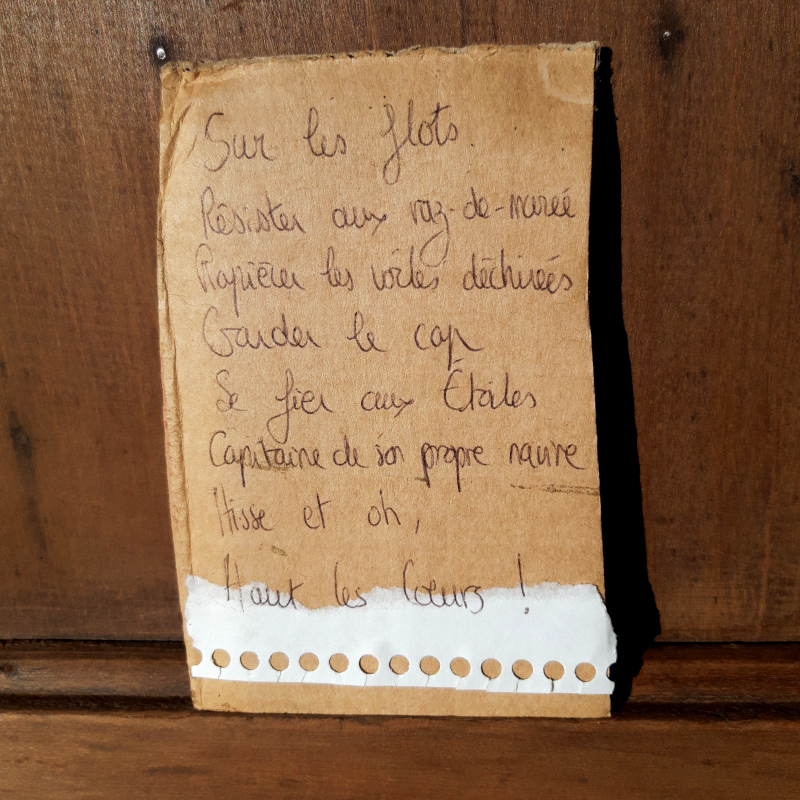 Sur les flots.
Résister aux raz-de-mareé
Rapiécer les voiles déchireés
Garder le cap
Se fier aux Étoiles
Capitaine de son propre navire
Hisse et oh,
Haut les Cœurs !